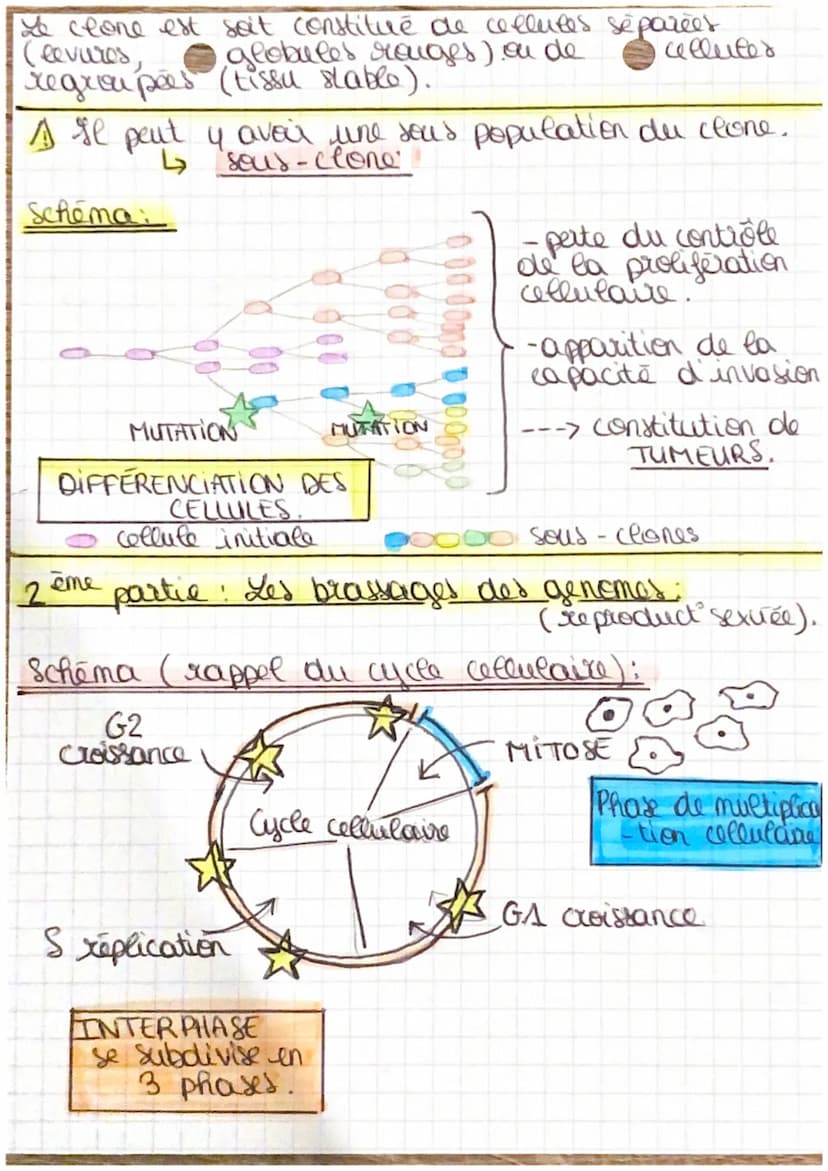 Le clone est soit constitué de cellules séparées
(levures, globules rouges) ou de cellules
regroupées (tissu stable).
⚠ Il peut y avoir une sous population du clone.
↳ sous-clone
Schéma:
- perte du contrôle
de la prolifération
cellulaire.
- apparition de la
capacité d'invasion
---> constitution de
TUMEURS.
MUTATION MUTATION
DIFFÉRENCIATION DES
CELLULES.
cellule initiale sous-clones
2ème partie : Les brassages des genomes:
(reproduct° sexuée).
Schéma (rappel du cycle cellulaire):
G2
croissance
MITOSE
Phase de multiplica
-tion cellulaire
Cycle cellulaire
G1 croissance
S réplication
INTERPHASE
se subdivise en
3 phases.